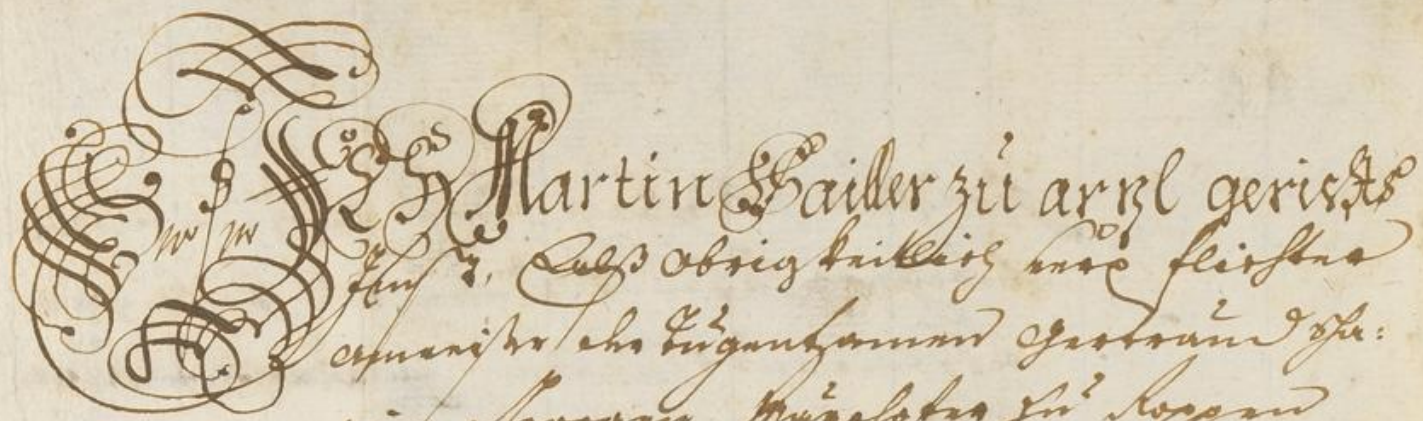 ICh Martin Gailler zu arzl gerichts
Imbst, Alß obrigkeitlich verpflichter
anweiser der Tugentsamen Gertraud Scha:
zu Roppen